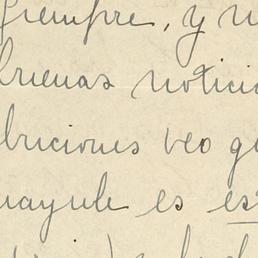 siempre, y n
buenas notici
buciones veo q
uayule es es